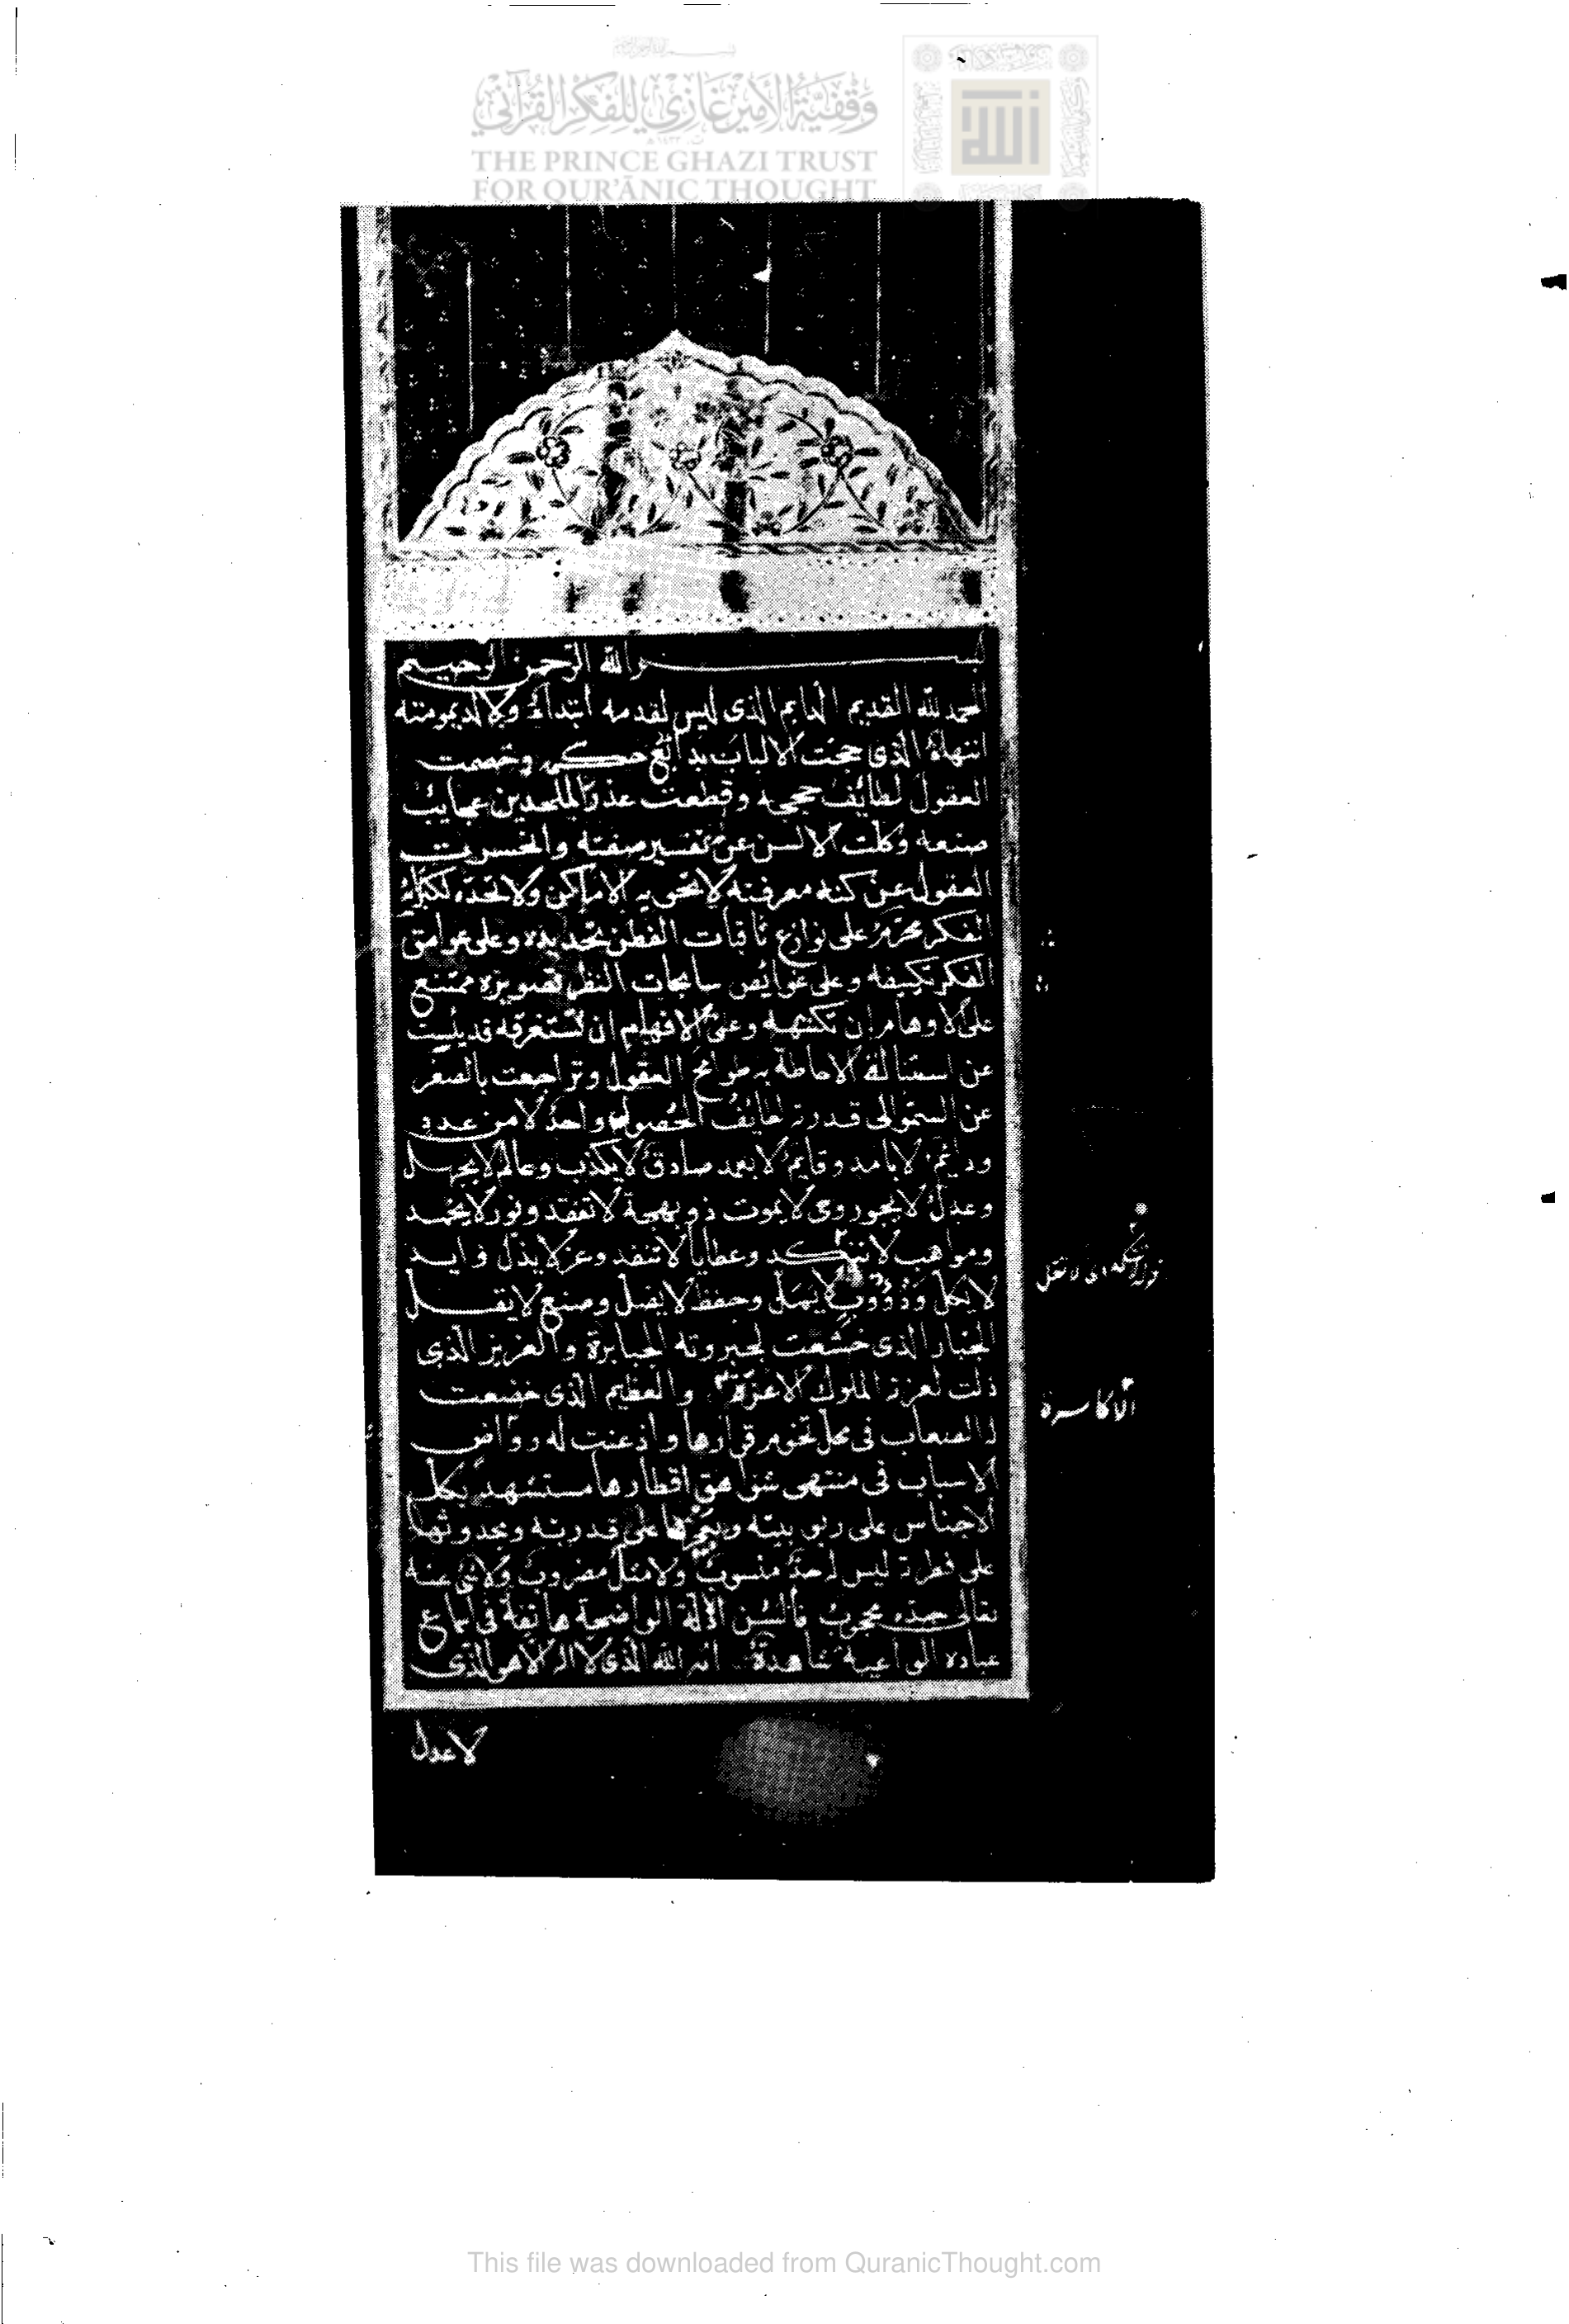 وقفية الأمير غازي للفكر القرآني
THE PRINCE GHAZI TRUST
FOR QUR'ĀNIC THOUGHT
بسم الله الرحمن الرحيم
الحمد لله القديم الدايم الذى ليس لقدمه ابتداء ولا لديمومته
انتهاء الذى حجت الالباب بدائع حكمه وخصمت
العقول لطايف حججه وقطعت عذر الملحدين عجايب
صنعه وكلت الالسن عن تفسير صفته وانحسرت
العقول عن كنه معرفته لا تحويه الاماكن ولا تحده
الفكر محرم على نوازع ثاقبات الفطن تحديده وعلى عوامق
الفكر تكييفه وعلى غوايص سابحات النظر تصويره ممتنع
على الاوهام ان تكتنهه وعلى الافهام ان تستغرقه قد يئست
عن استنالة الاحاطة به طوامح العقول وتراجعت بالصغر
عن السمو الى قدرته لطايف الخصوم واحد لا من عدد
ودايم لا بامد وقايم لا بعمد صادق لا يكذب وعالم لا يجهل
وعدل لا يجور وحى لا يموت ذو بهجة لا تفقد ونور لا يخمد
ومواهب لا تنكد وعطايا لا تنفد وعز لا يذل وايد
لا يكل لا يهمل وحفظ لا يضل وصنع لا يقل
الجبار الذى خشعت لجبروته الجبابرة والعزيز الذى
ذلت لعزته الملوك الاعزة والعظيم الذى خضعت
له الصعاب فى محل تخوم قرارها واذعنت له رواض
الاسباب فى منتهى شواهق اقطارها مستشهد بكل
الاجناس على ربوبيته وبعجزها على قدرته وبحدوثها
على فطرته ليس له حد منسوب ولا مثل مضروب ولا شىء عنه
تعالى محجوب فألسن الادلة الواضحة هاتفة فى اسماع
عباده الواعية شاهدة انه الله الذى لا اله الا هو الذى
الاكاسرة
لا عدل
This file was downloaded from QuranicThought.com